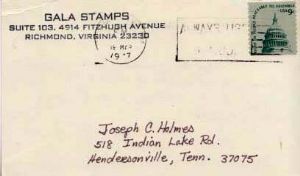 GALA STAMPS
SUITE 103, 4914 FITZHUGH AVENUE
RICHMOND, VIRGINIA 23230
Joseph C. Holmes
518 Indian Lake Rd.
Hendersonville, Tenn. 37075